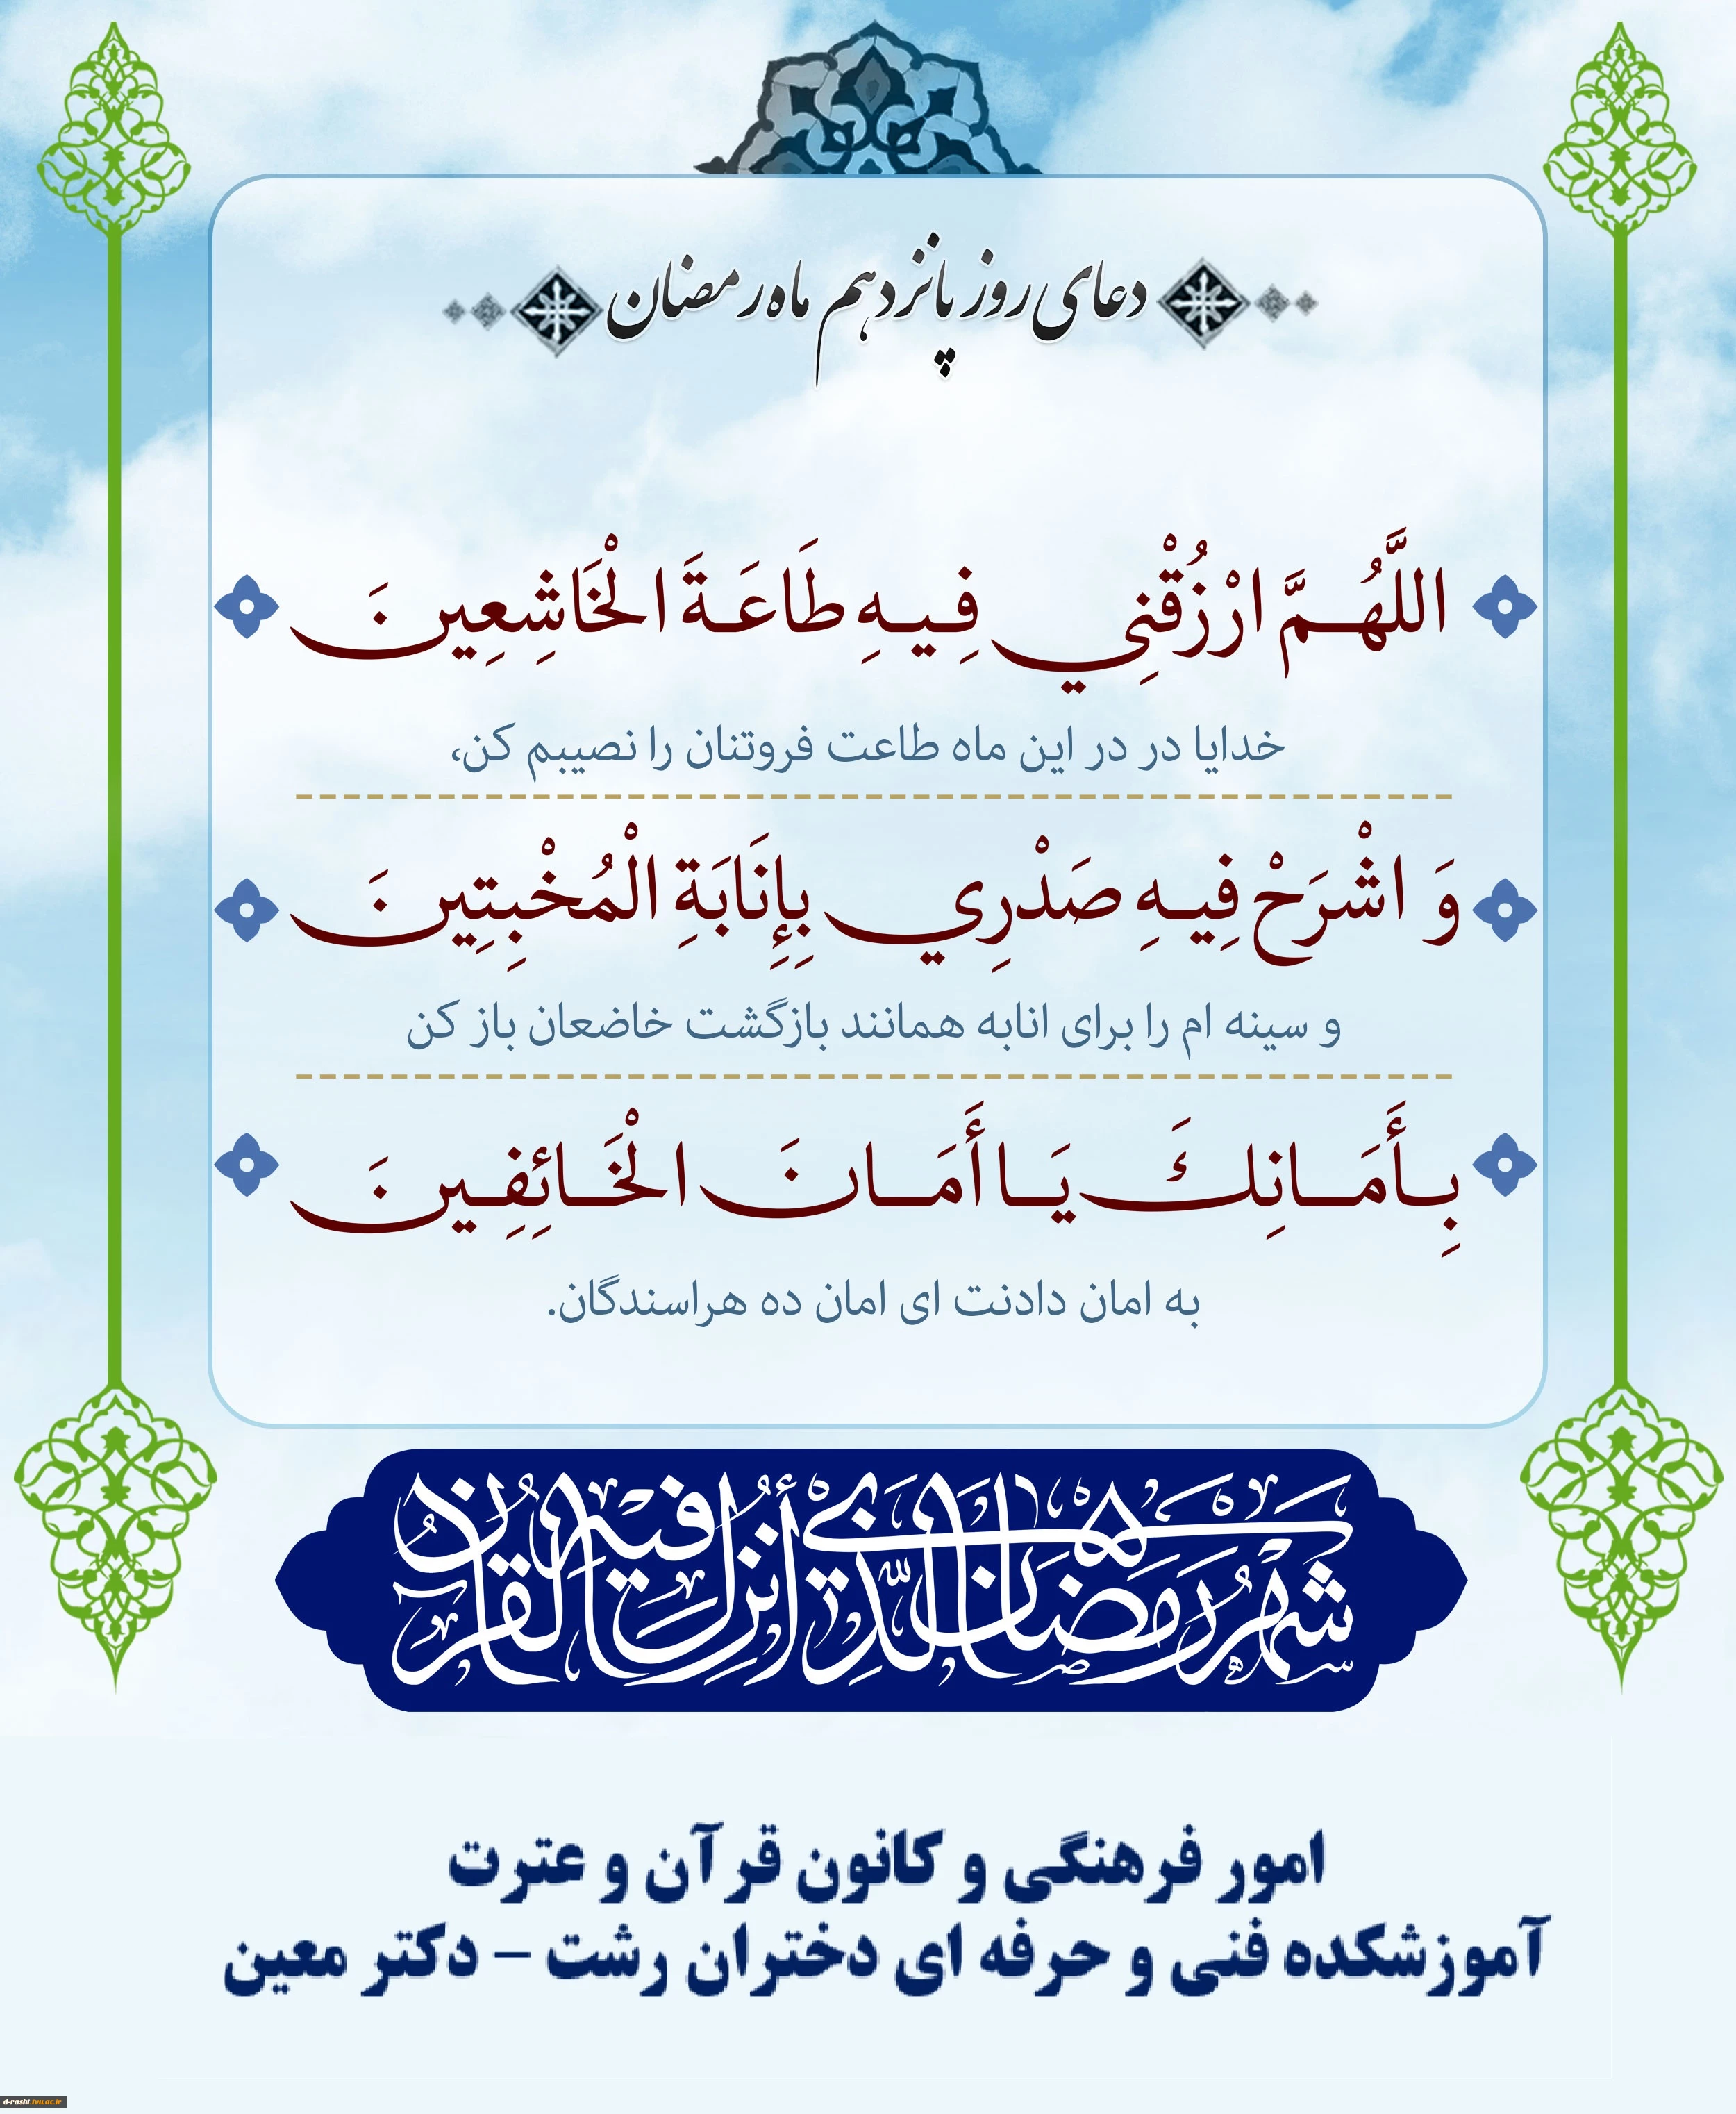 دعای روز پانزدهم ماه رمضان
اللَّهُمَّ ارْزُقْنِي فِيهِ طَاعَةَ الْخَاشِعِينَ
خدایا در در این ماه طاعت فروتنان را نصیبم کن،
وَ اشْرَحْ فِيهِ صَدْرِي بِإِنَابَةِ الْمُخْبِتِينَ
و سینه ام را برای انابه همانند بازگشت خاضعان باز کن
بِأَمَانِكَ يَا أَمَانَ الْخَائِفِينَ
به امان دادنت ای امان ده هراسندگان.
شهر رمضان الذي أنزل فيه القرآن
امور فرهنگی و کانون قرآن و عترت
آموزشکده فنی و حرفه ای دختران رشت – دکتر معین
d-rasht.tvu.ac.ir